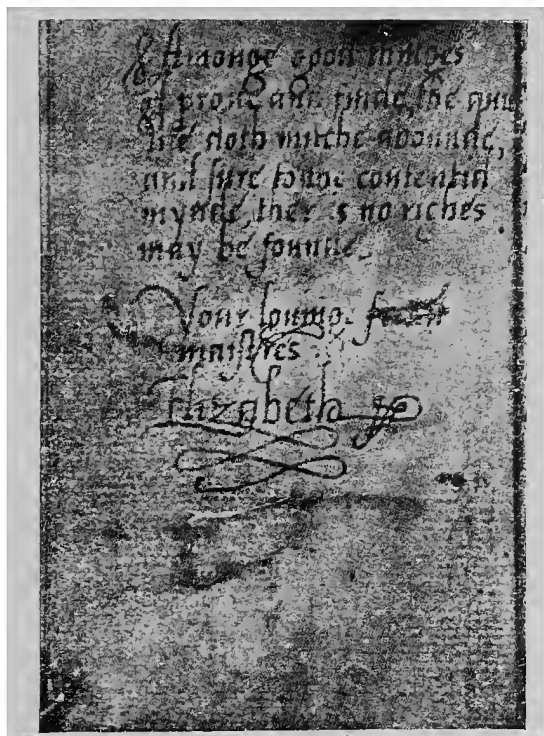 Amonge good thinges
I prove and finde, the quiet
life doth muche abounde,
and sure to the contentid
mynde, ther is no riches
may be founde.
Your lovinge
maistres
Elizabeth